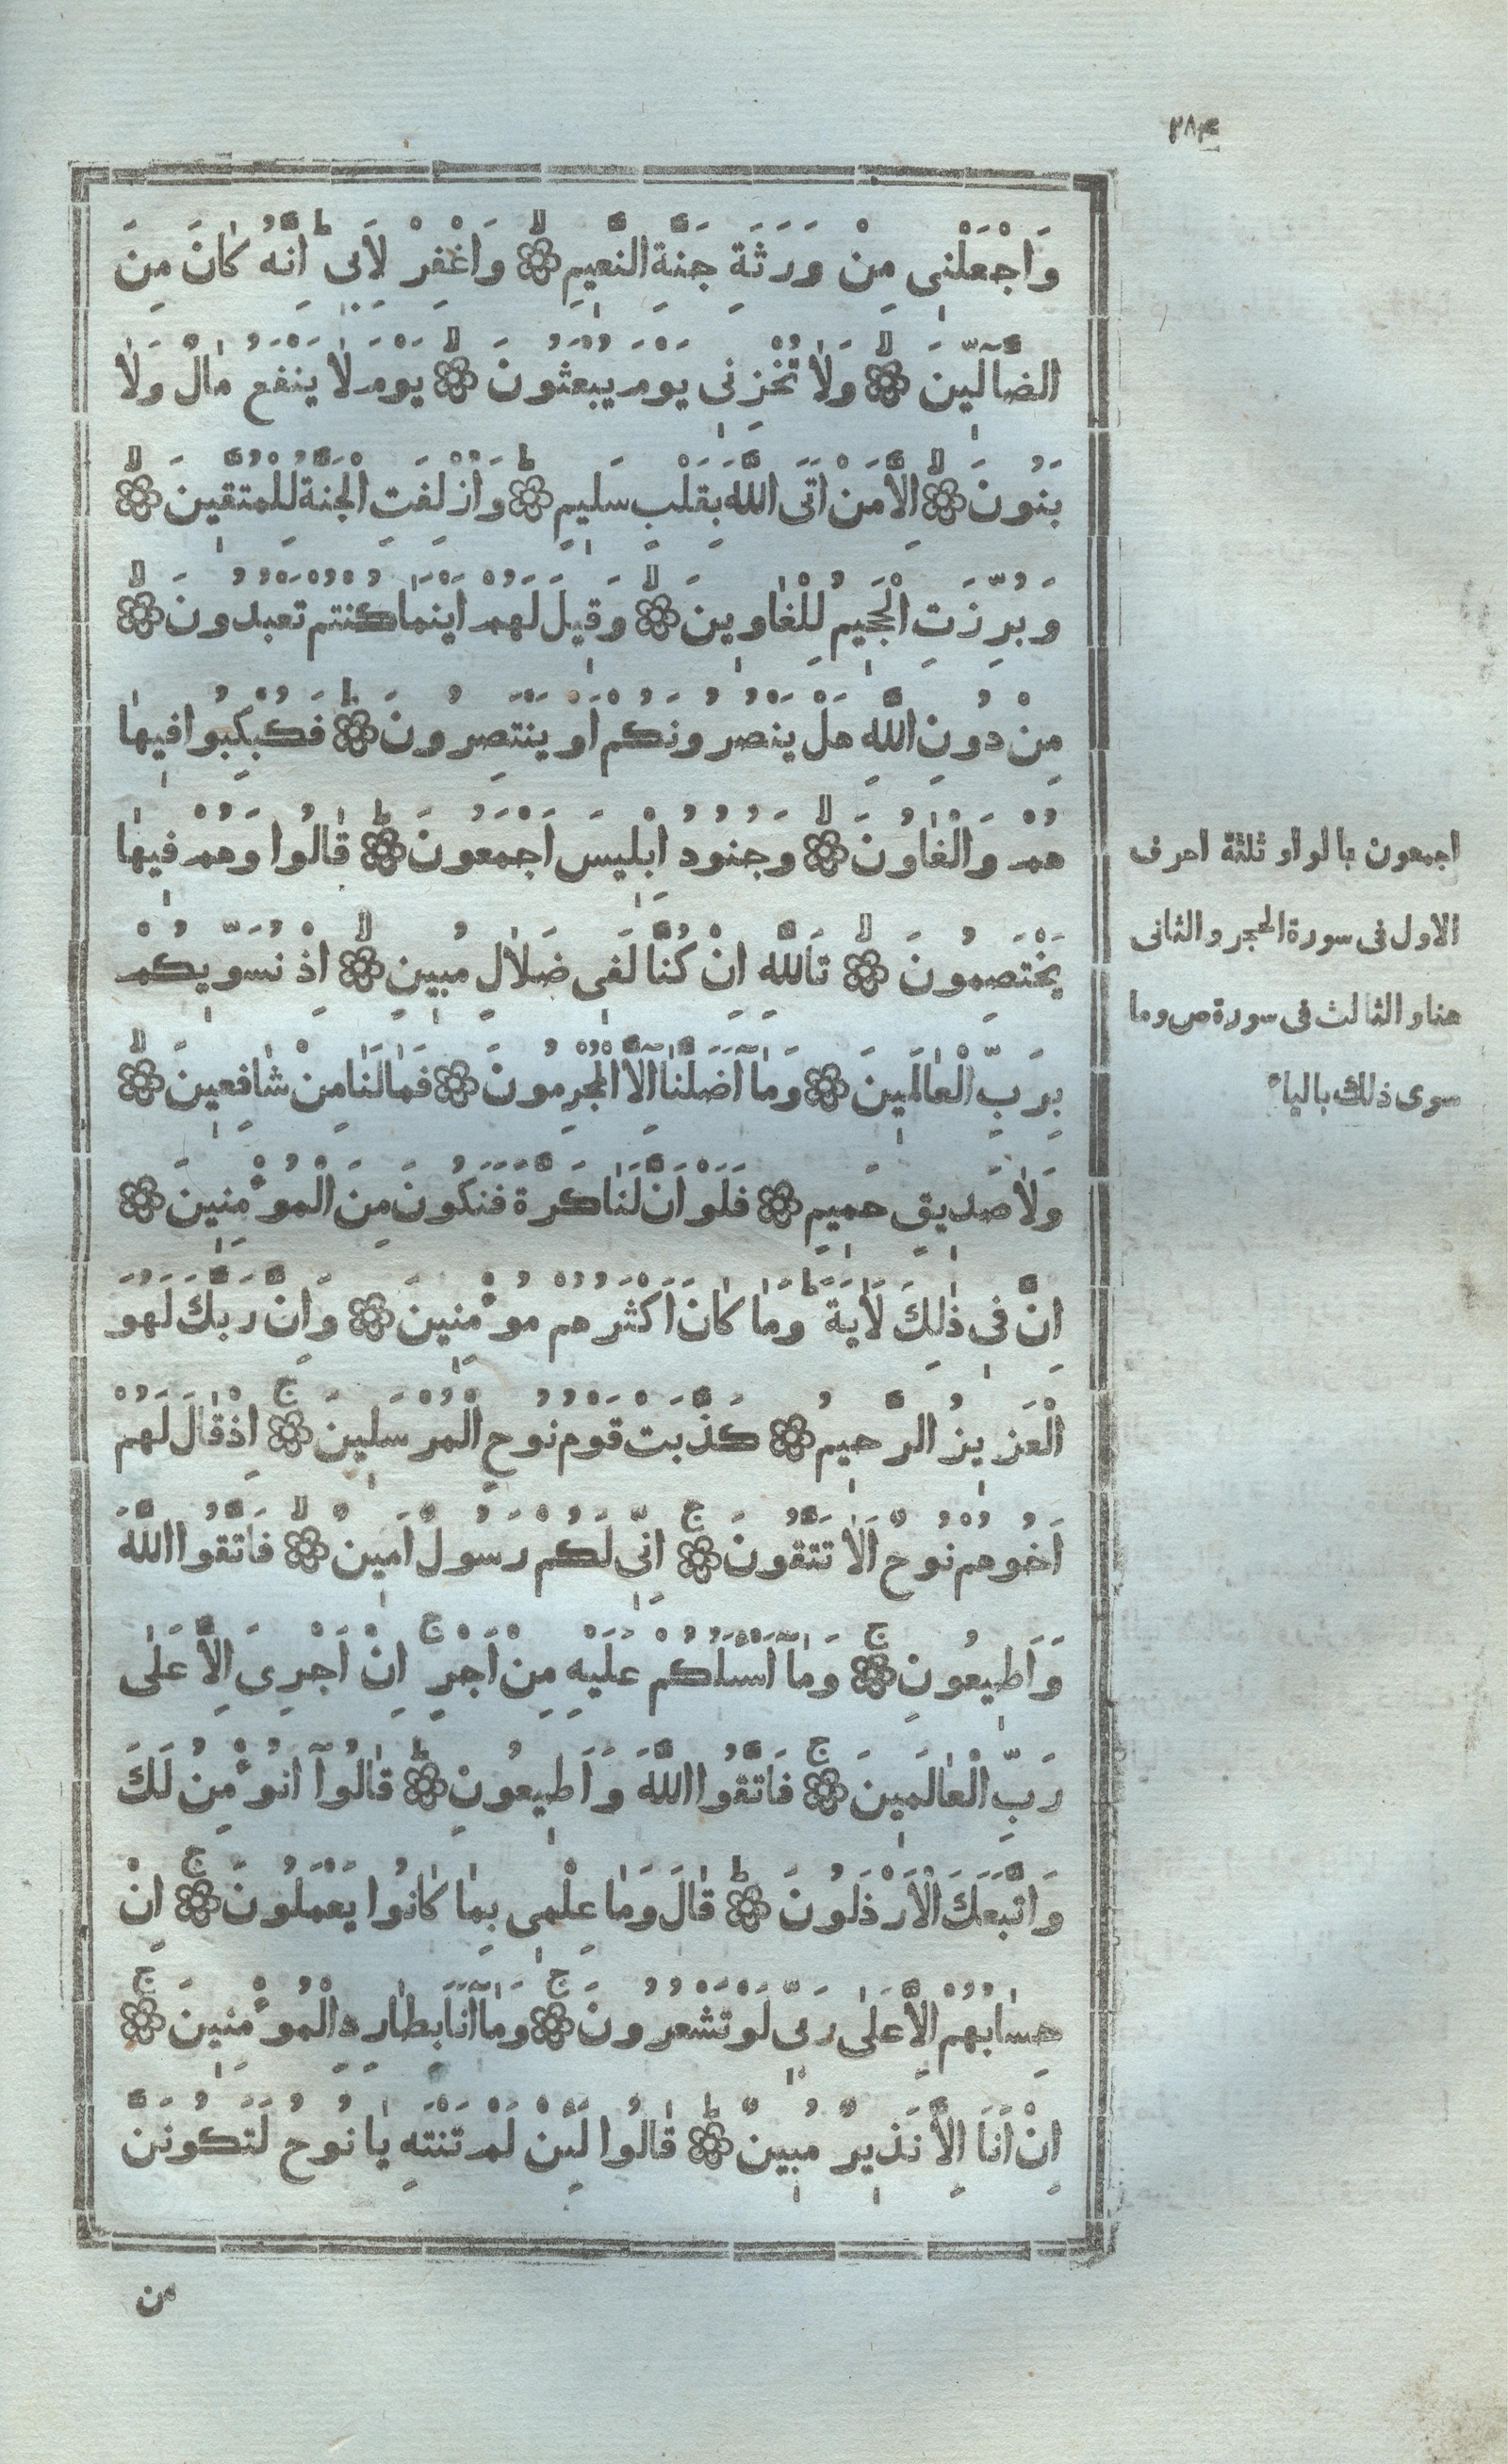 ٢٨٣
وَاجْعَلْنِى مِنْ وَرَثَةِ جَنَّةِ النَّعِيمِ ۙ وَاغْفِرْ لِاَبِى ۗ اِنَّهُ كَانَ مِنَ
الضَّآلِّينَ ۙ وَلَا تُخْزِنِى يَوْمَ يُبْعَثُونَ ۙ يَوْمَ لَا يَنْفَعُ مَالٌ وَلَا
بَنُونَ ۙ اِلَّا مَنْ اَتَى اللَّهَ بِقَلْبٍ سَلِيمٍ ۗ وَاُزْلِفَتِ الْجَنَّةُ لِلْمُتَّقِينَ ۙ
وَبُرِّزَتِ الْجَحِيمُ لِلْغَاوِينَ ۙ وَقِيلَ لَهُمْ اَيْنَمَا كُنْتُمْ تَعْبُدُونَ ۙ
مِنْ دُونِ اللَّهِ هَلْ يَنْصُرُونَكُمْ اَوْ يَنْتَصِرُونَ ۗ فَكُبْكِبُوا فِيهَا
هُمْ وَالْغَاوُنَ ۙ وَجُنُودُ اِبْلِيسَ اَجْمَعُونَ ۗ قَالُوا وَهُمْ فِيهَا
يَخْتَصِمُونَ ۙ تَاللَّهِ اِنْ كُنَّا لَفِى ضَلَالٍ مُبِينٍ ۙ اِذْ نُسَوِّيكُمْ
بِرَبِّ الْعَالَمِينَ وَمَآ اَضَلَّنَآ اِلَّا الْمُجْرِمُونَ فَمَا لَنَا مِنْ شَافِعِينَ ۙ
وَلَا صَدِيقٍ حَمِيمٍ فَلَوْ اَنَّ لَنَا كَرَّةً فَنَكُونَ مِنَ الْمُوْمِنِينَ
اِنَّ فِى ذٰلِكَ لَاٰيَةً ۗ وَمَا كَانَ اَكْثَرُهُمْ مُوْمِنِينَ وَاِنَّ رَبَّكَ لَهُوَ
الْعَزِيزُ الرَّحِيمُ كَذَّبَتْ قَوْمُ نُوحٍ الْمُرْسَلِينَ ۚ اِذْ قَالَ لَهُمْ
اَخُوهُمْ نُوحٌ اَلَا تَتَّقُونَ ۚ اِنِّى لَكُمْ رَسُولٌ اَمِينٌ ۙ فَاتَّقُوا اللَّهَ
وَاَطِيعُونِ ۚ وَمَآ اَسْئَلُكُمْ عَلَيْهِ مِنْ اَجْرٍ ۚ اِنْ اَجْرِىَ اِلَّا عَلَى
رَبِّ الْعَالَمِينَ ۚ فَاتَّقُوا اللَّهَ وَاَطِيعُونِ ۗ قَالُوآ اَنُوْمِنُ لَكَ
وَاتَّبَعَكَ الْاَرْذَلُونَ ۗ قَالَ وَمَا عِلْمِى بِمَا كَانُوا يَعْمَلُونَ ۚ اِنْ
حِسَابُهُمْ اِلَّا عَلَى رَبِّى لَوْ تَشْعُرُونَ ۚ وَمَآ اَنَا بِطَارِدِ الْمُوْمِنِينَ ۚ
اِنْ اَنَا اِلَّا نَذِيرٌ مُبِينٌ ۗ قَالُوا لَئِنْ لَمْ تَنْتَهِ يَا نُوحُ لَتَكُونَنَّ
من
اجمعون بالواو ثلثة احرف
الاول فى سورة الحجر والثانى
هنا و الثالث فى سورة ص وما
سوى ذلك بالياء